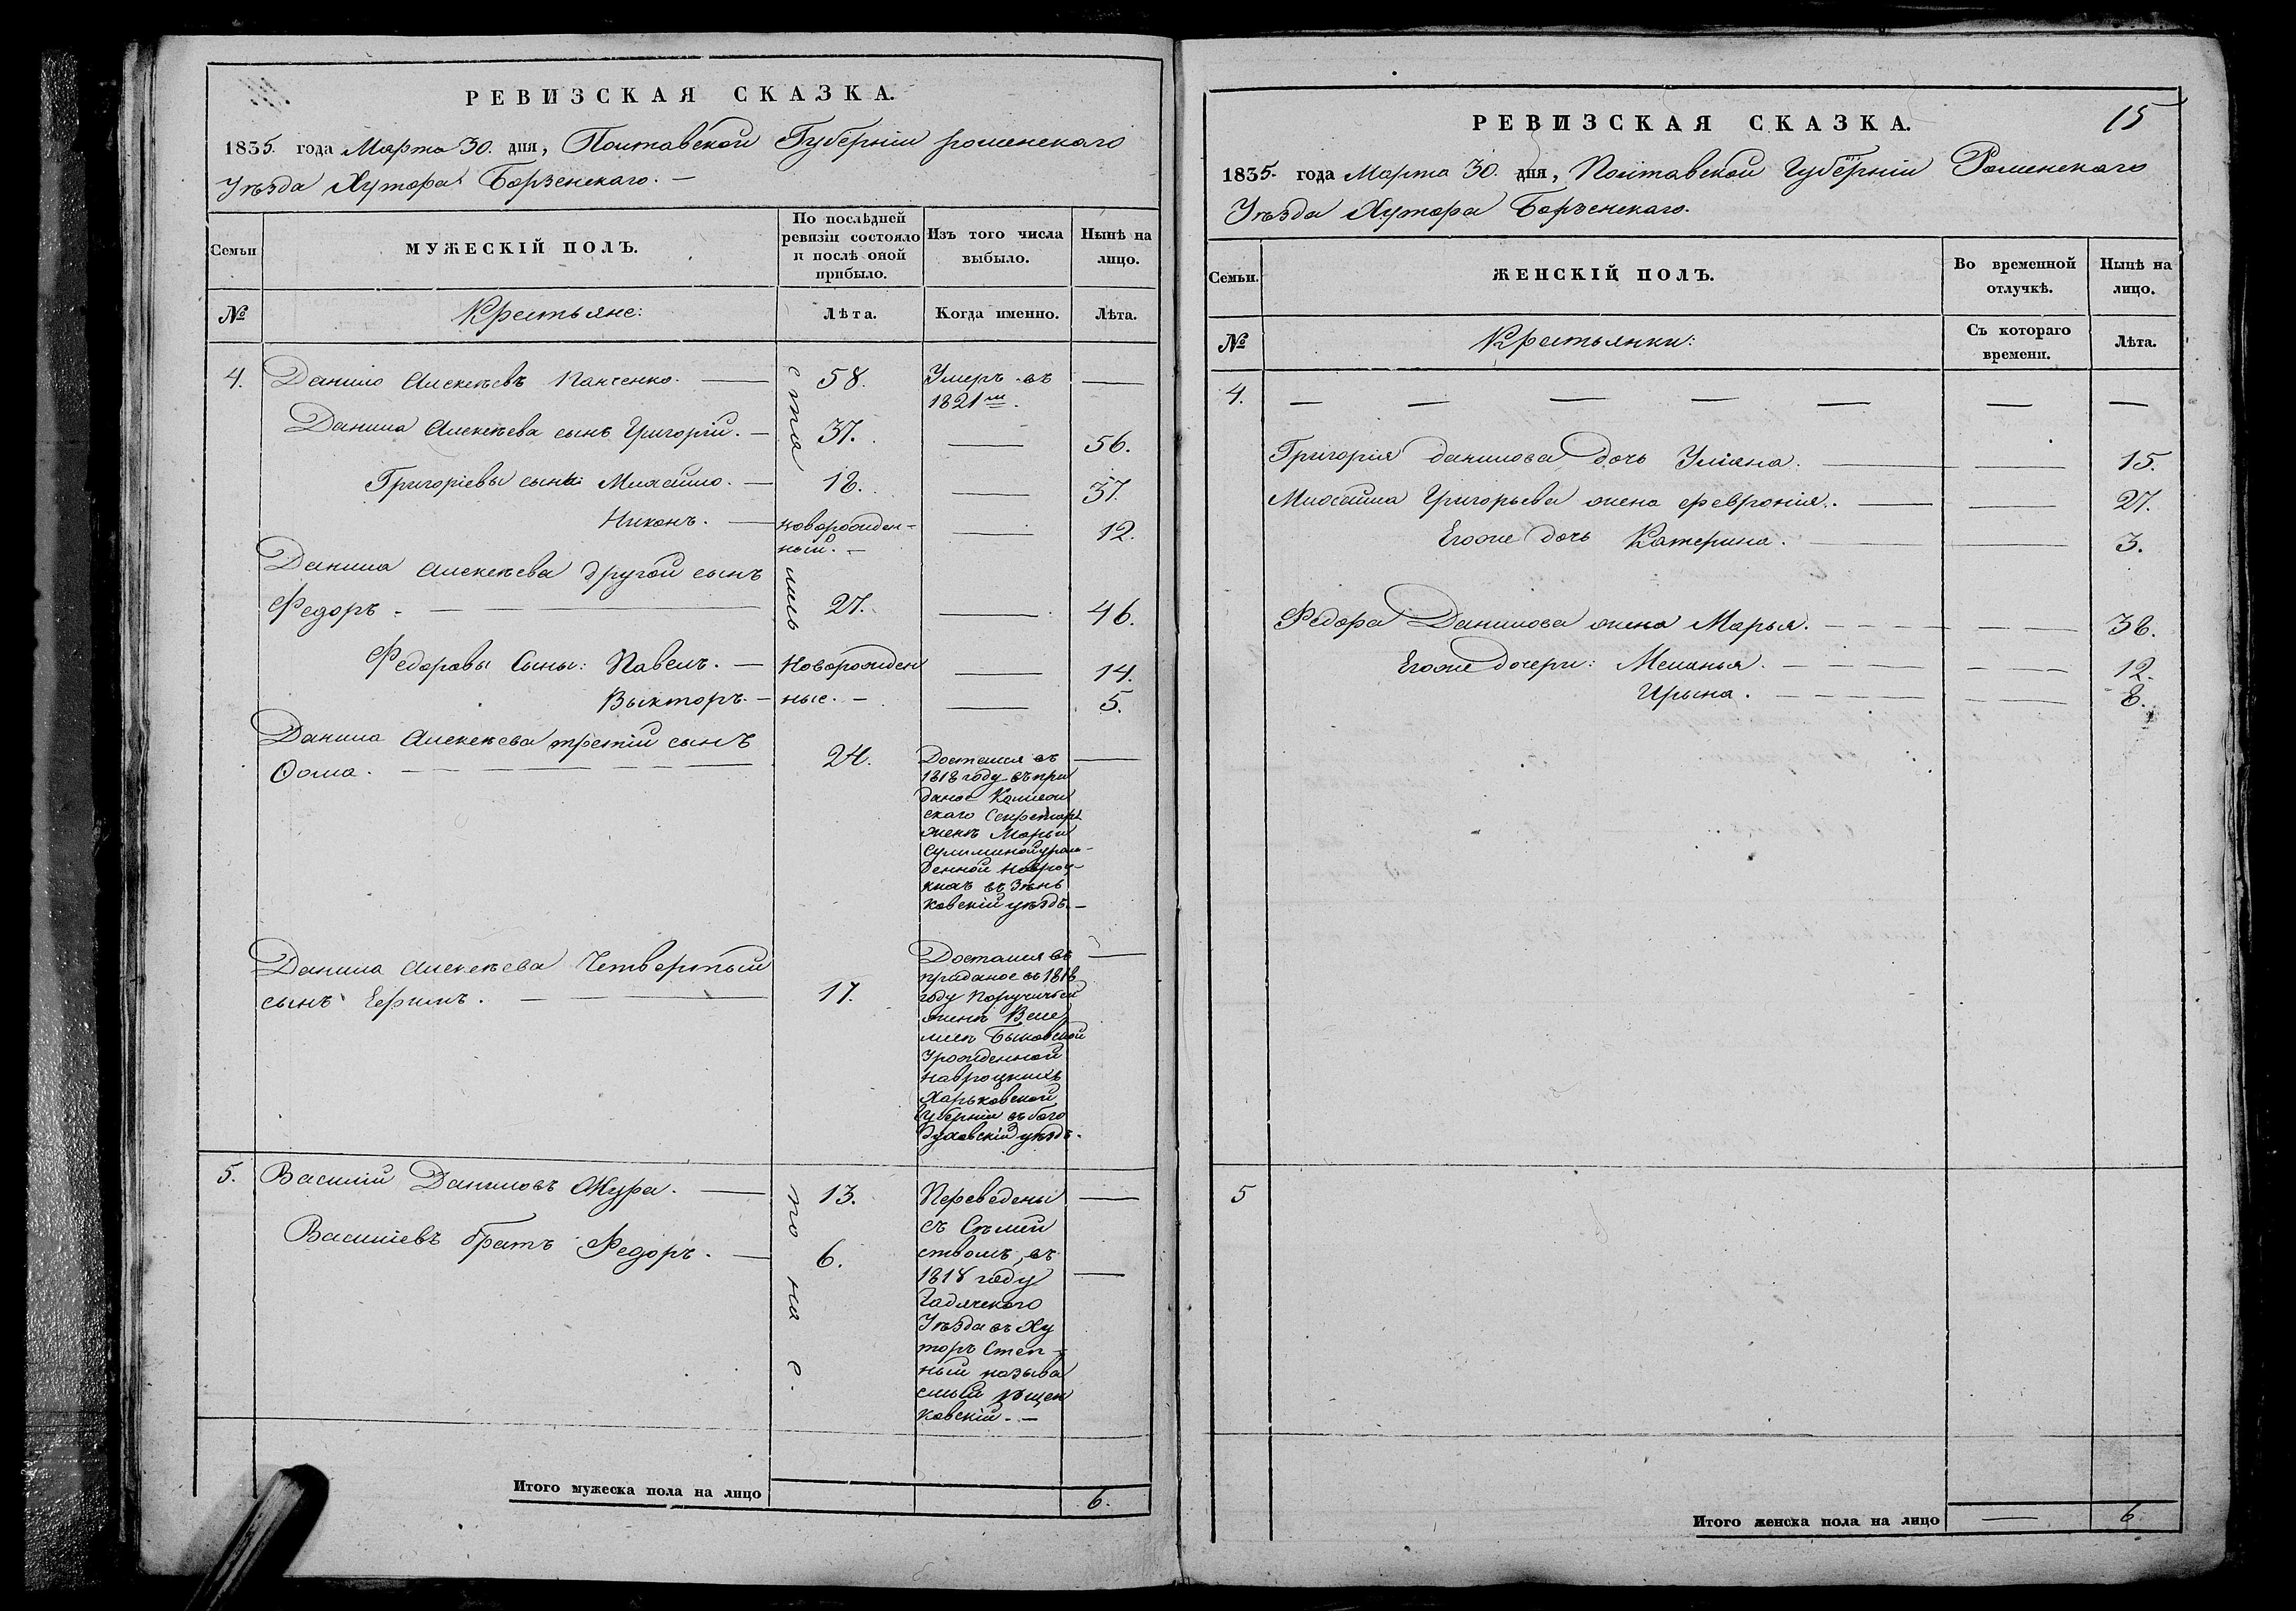 РЕВИЗСКАЯ СКАЗКА.
1835. года Марта 30. дня, Полтавской Губерніи роменскаго
Уѣзда Хутора Борзенскаго. —
Семьи
МУЖЕСКІЙ ПОЛЪ.
По послѣдней
ревизіи состояло
и послѣ оной
прибыло.
Изъ того числа
выбыло.
Нынѣ на
лицо.
№
Крестьяне:
Лѣта.
Когда именно.
Лѣта.
4. Данило Алексѣевъ Панченко. — 58. Умеръ въ —
1821м.
Данила Алексѣева сынъ Григорій. — 37. — 56.
Григоріевы сыны: Михайло. — 18. — 37.
Никонъ. — новорожден- — 12.
ный. —
Данила Алексѣева другой сынъ
Федоръ. — 27. — 46.
Федоровы Сыны: Павелъ. — Новорожден — 14.
Выкторъ. — ные. — — 5.
Данила Алексѣева третій сынъ
Ѳома. — 24. Достался въ —
1818 году въ при
даное Коллеж
скаго Секретаря
женѣ Марьи
Сулиминой урож-
денной Навроц-
кихъ въ Зѣнь
ковскій уѣздъ. —
Данила Алексѣева Четвертый
сынъ Ефимъ. — 17. Достался въ —
приданое въ 1818
году Поручичьей
женѣ
Быковской
Урожденной
Навроцкихъ
Харьковской
Губерніи въ бого
духовскій уѣздъ.
5. Василій Даниловъ Жура. — 13. Переведены —
Василіевъ братъ Федоръ. — 6.
съ Сѣмей
ствомъ, въ
1818 году —
Гадячского
Уѣзда въ Ху
торъ Степ-
ный называ
емый
ковскій. —
Итого мужеска пола на лицо 6.
РЕВИЗСКАЯ СКАЗКА. 15
1835. года Марта 30. дня, Полтавской Губерніи Роменскаго
Уѣзда Хутора Борзенскаго.
Семьи.
ЖЕНСКІЙ ПОЛЪ.
Во временной
отлучкѣ.
Нынѣ на
лицо.
№
Крестьянки:
Съ котораго
времени.
Лѣта.
4. — — — — — — —
Григорія данилова дочь Уліана. — — 15.
Михайла Григорьева жена февронія. — — 27.
Егоже дочь Катерина. — — 3.
Федора Данилова жена Марья. — — 38.
Егоже дочери: Меланья. — — 12.
Ирына. — — 8.
5
Итого женска пола на лицо — 6